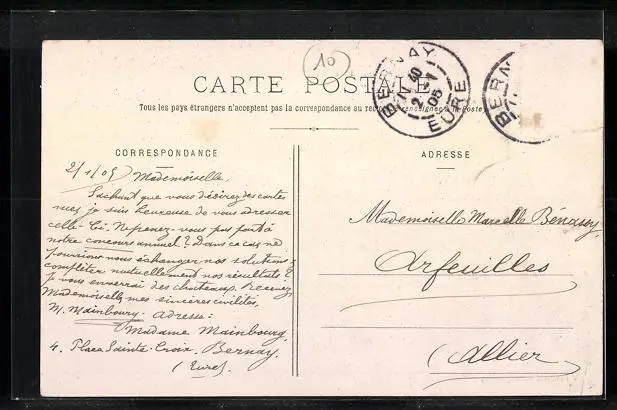 10
CARTE POSTALE
BERNAY
11 40
2 - 1
05
EURE
BERN
Tous les pays étrangers n'acceptent pas la correspondance au recto (se renseigner à la Poste)
CORRESPONDANCE
2/1/05
Mademoiselle,
Sachant que vous désirez des cartes
vues je suis heureuse de vous adresser
celle-ci. Ne prenez-vous pas part à
notre concours annuel? Dans ce cas ne
pourrions nous échanger nos solutions &
compléter mutuellement nos résultats?
je vous enverrai des chateaux. Recevez
Mademoiselle, mes sincères civilités,
M. Mainbourg. Adresse:
Madame Mainbourg,
4. Place Sainte-Croix, Bernay.
(Eure)
ADRESSE
Mademoiselle Marcelle Bénassy
Arfeuilles
(Allier)